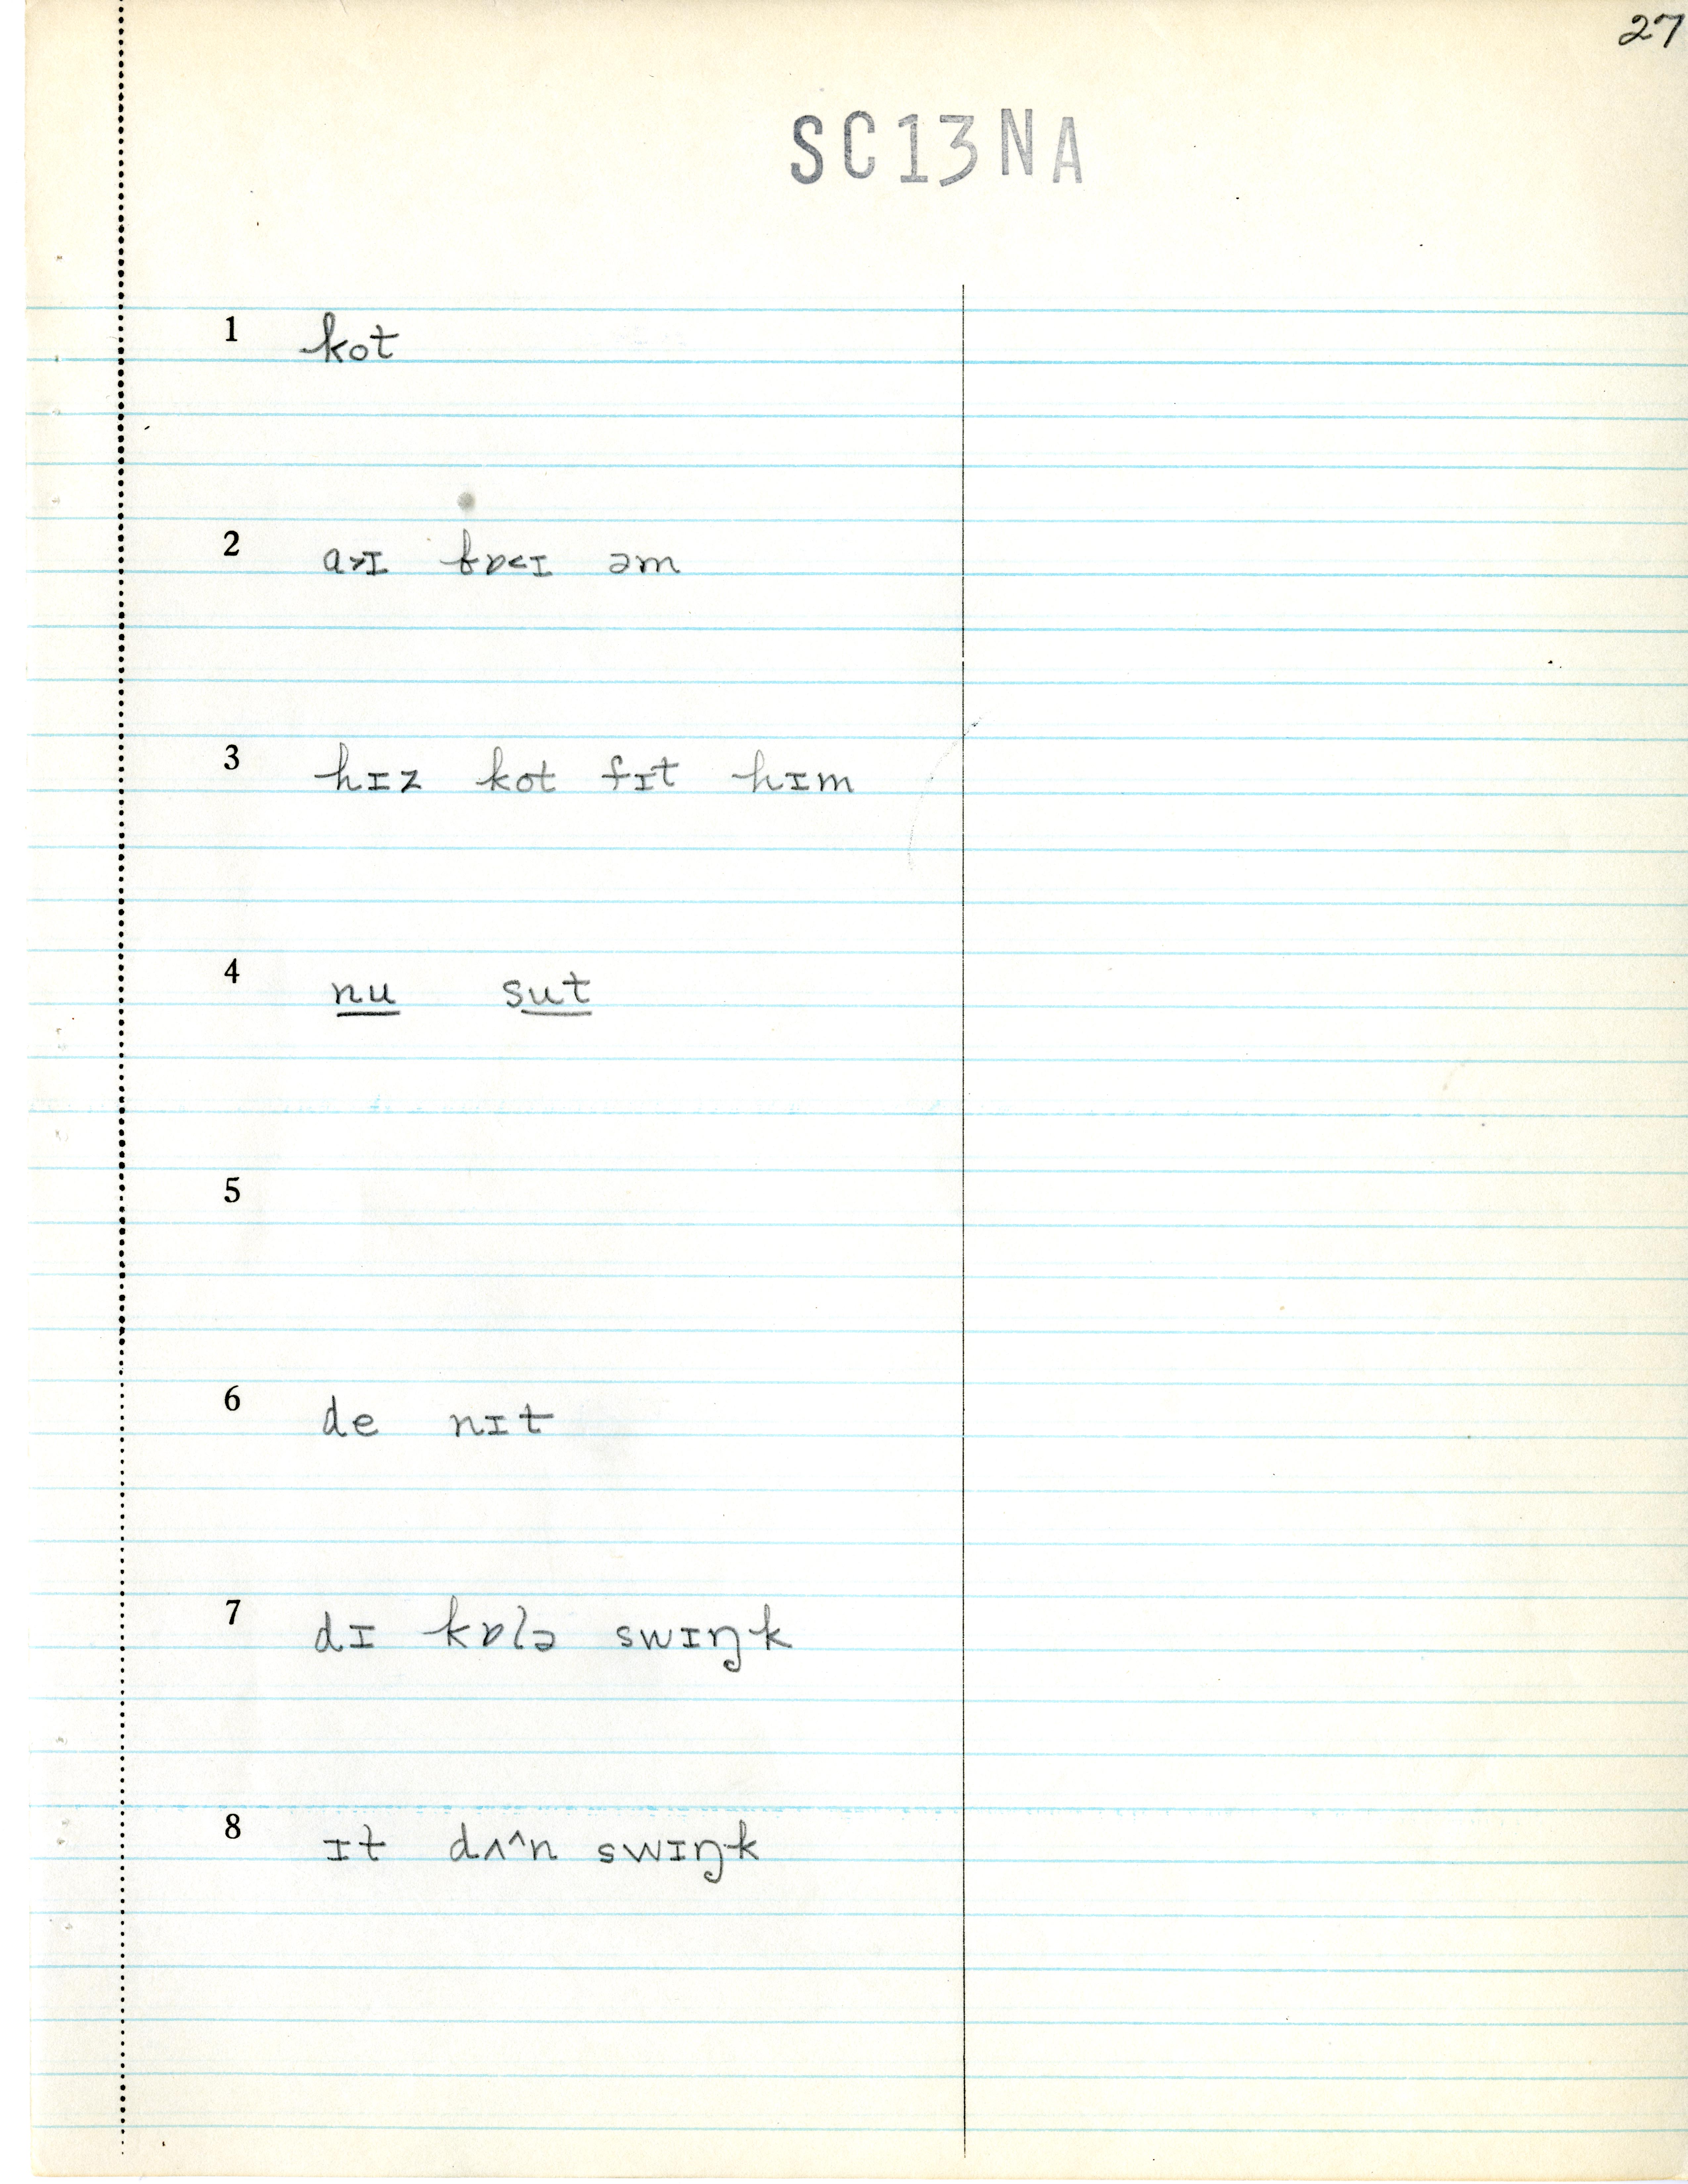 27
SC13NA
1 kot
2 a˃ɪ ƭɒ˂ɪ əm
3 hɪz kot fɪt hɪm
4 nu sut
5
6 de nɪt
7 dɪ kɒlə swɪŋk
8 ɪt dʌ^n swɪŋk